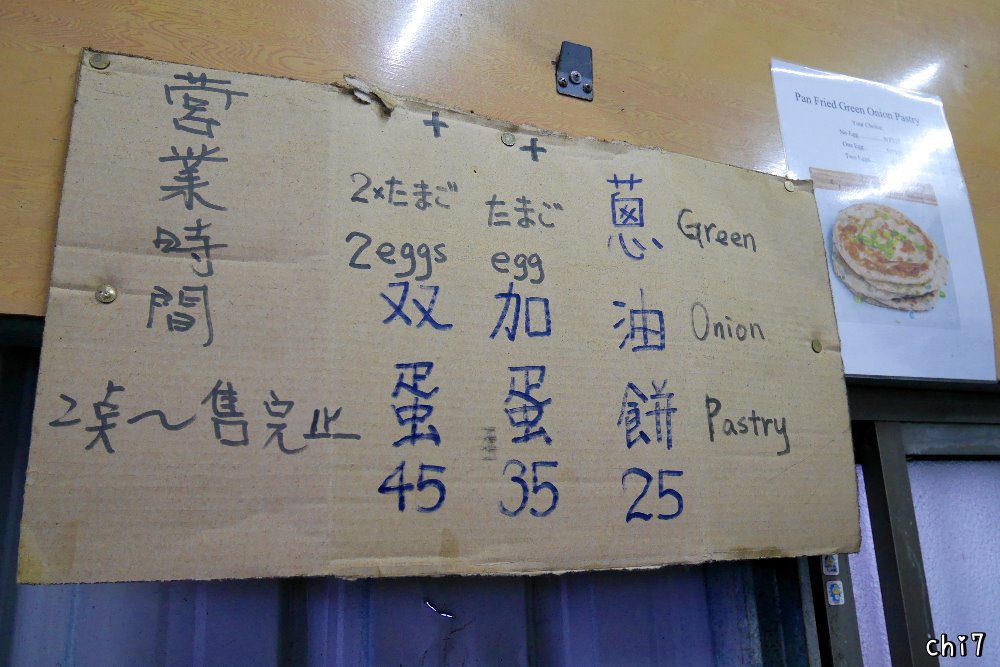 蔥油餅 25
Green
Onion
Pastry
+
たまご
egg
加蛋 35
+
2×たまご
2eggs
双蛋 45
營業時間
2点～售完止
Pan Fried Green Onion Pastry
Your Choice:
No Egg
One Egg
Two Eggs
chi7